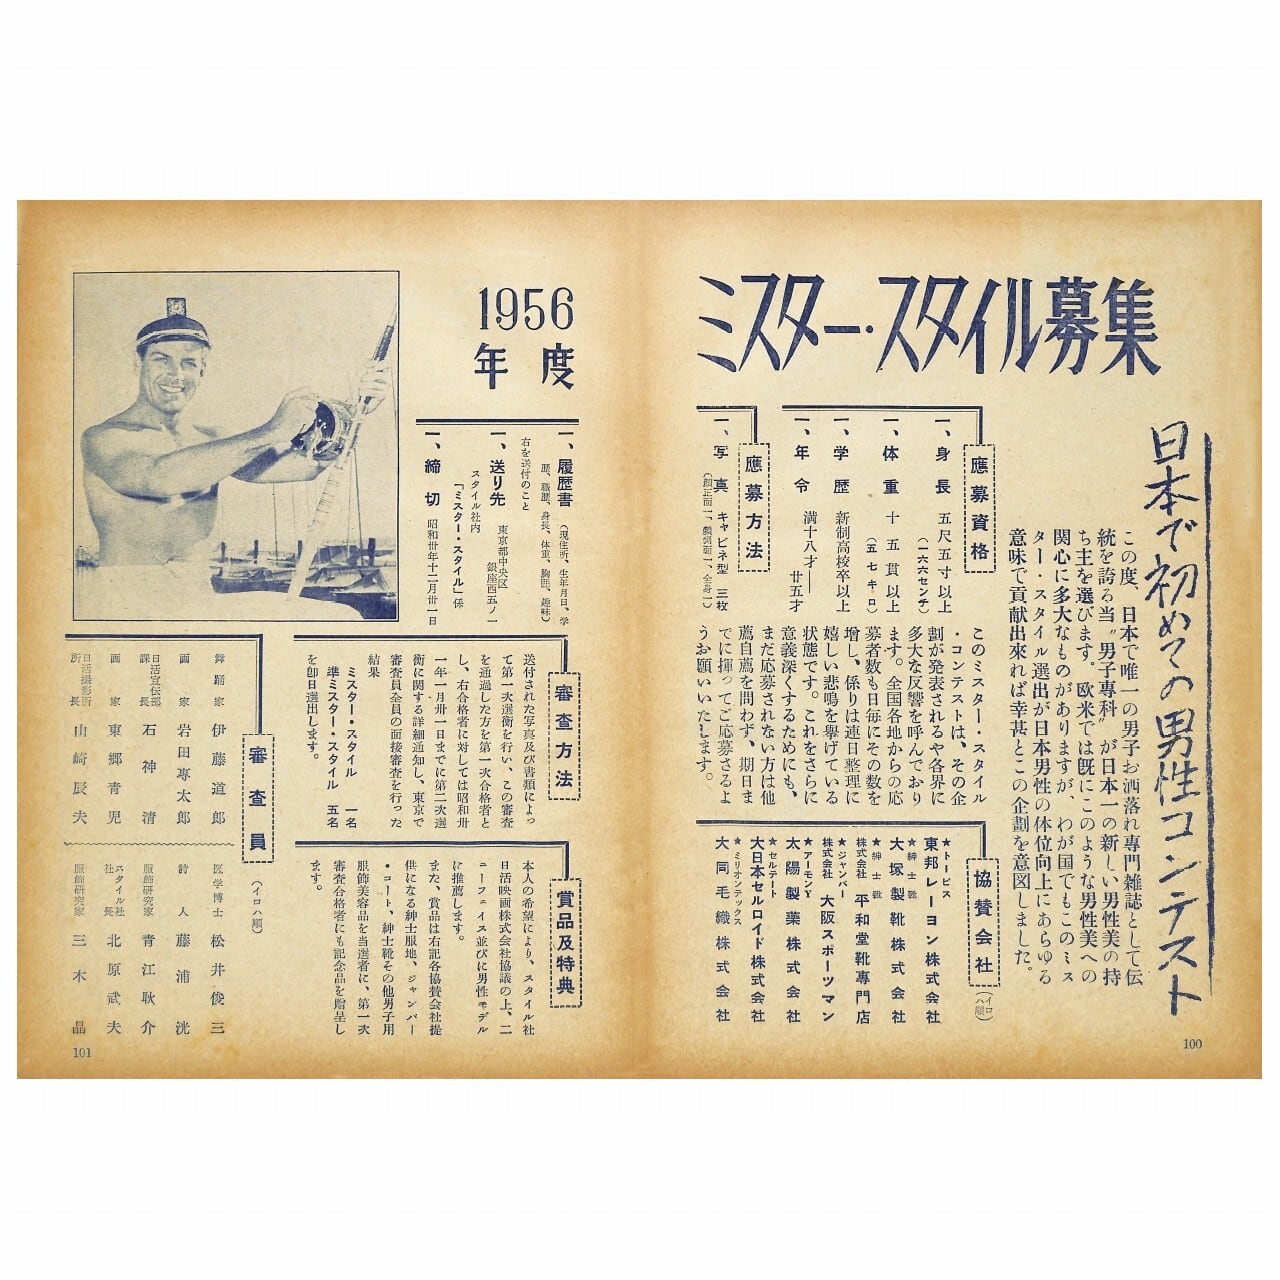 ミスター・スタイル募集
1956
年度
日本で初めての男性コンテスト
この度、日本で唯一の男子お洒落専門雑誌として伝
統を誇る当〝男子専科〟が日本一の新しい男性美の持
ち主を選びます。欧米では既にこのような男性美への
関心に多大なものがありますが、わが国でもこのミス
ター・スタイル選出が日本男性の体位向上にあらゆる
意味で貢献出來れば幸甚とこの企劃を意図しました。
應募資格
一、身長 五尺五寸以上
(一六六センチ)
一、体重 十五貫以上
(五七キロ)
一、学歴 新制高校卒以上
一、年令 満十八才―廿五才
應募方法
一、写真 キャビネ型 三枚
(顔正面一、顔側面一、全身一)
一、履歴書 (現住所、生年月日、学
歴、職歴、身長、体重、胸囲、趣味)
右を送付のこと
一、送り先 東京都中央区
銀座西五ノ一
スタイル社内
「ミスター・スタイル」係
一、締切 昭和卅年十二月卅一日
このミスター・スタイル
・コンテストは、その企
劃が発表されるや各界に
多大な反響を呼んでおり
ます。全国各地からの応
募者数も日毎にその数を
増し、係りは連日整理に
嬉しい悲鳴を擧げている
状態です。これをさらに
意義深くするためにも、
まだ応募されない方は他
薦自薦を問わず、期日ま
でに揮ってご応募さるよ
うお願いいたします。
協賛会社
(イロハ順)
★トービス
東邦レーヨン株式会社
★紳士靴
大塚製靴株式会社
★紳士靴
株式会社 平和堂靴専門店
★ジャンパー
株式会社 大阪スポーツマン
★アーモンY
太陽製薬株式会社
★セルテート
大日本セルロイド株式会社
★ミリオンテックス
大同毛織株式会社
審査方法
送付された写真及び書類によっ
て第一次選衡を行い、この審査
を通過した方を第一次合格者と
し、右合格者に対しては昭和卅
一年一月卅一日までに第二次選
衡に関する詳細通知し、東京で
審査員全員の面接審査を行った
結果
ミスター・スタイル 一名
準ミスター・スタイル 五名
を即日選出します。
賞品及特典
本人の希望により、スタイル社
日活映画株式会社協議の上、ニ
ューフェイス並びに男性モデル
に推薦します。
また、賞品は右記各協賛会社提
供になる紳士服地、ジャンパー
・コート、紳士靴その他男子用
服飾美容品を当選者に、第一次
審査合格者にも記念品を贈呈し
ます。
審査員
(イロハ順)
舞踊家 伊藤道郎
画家 岩田専太郎
日活宣伝部課長 石神清
画家 東郷青児
日活撮影所所長 山崎辰夫
医学博士 松井俊三
詩人 藤浦洸
服飾研究家 青江耿介
スタイル社社長 北原武夫
服飾研究家 三木晶
100
101